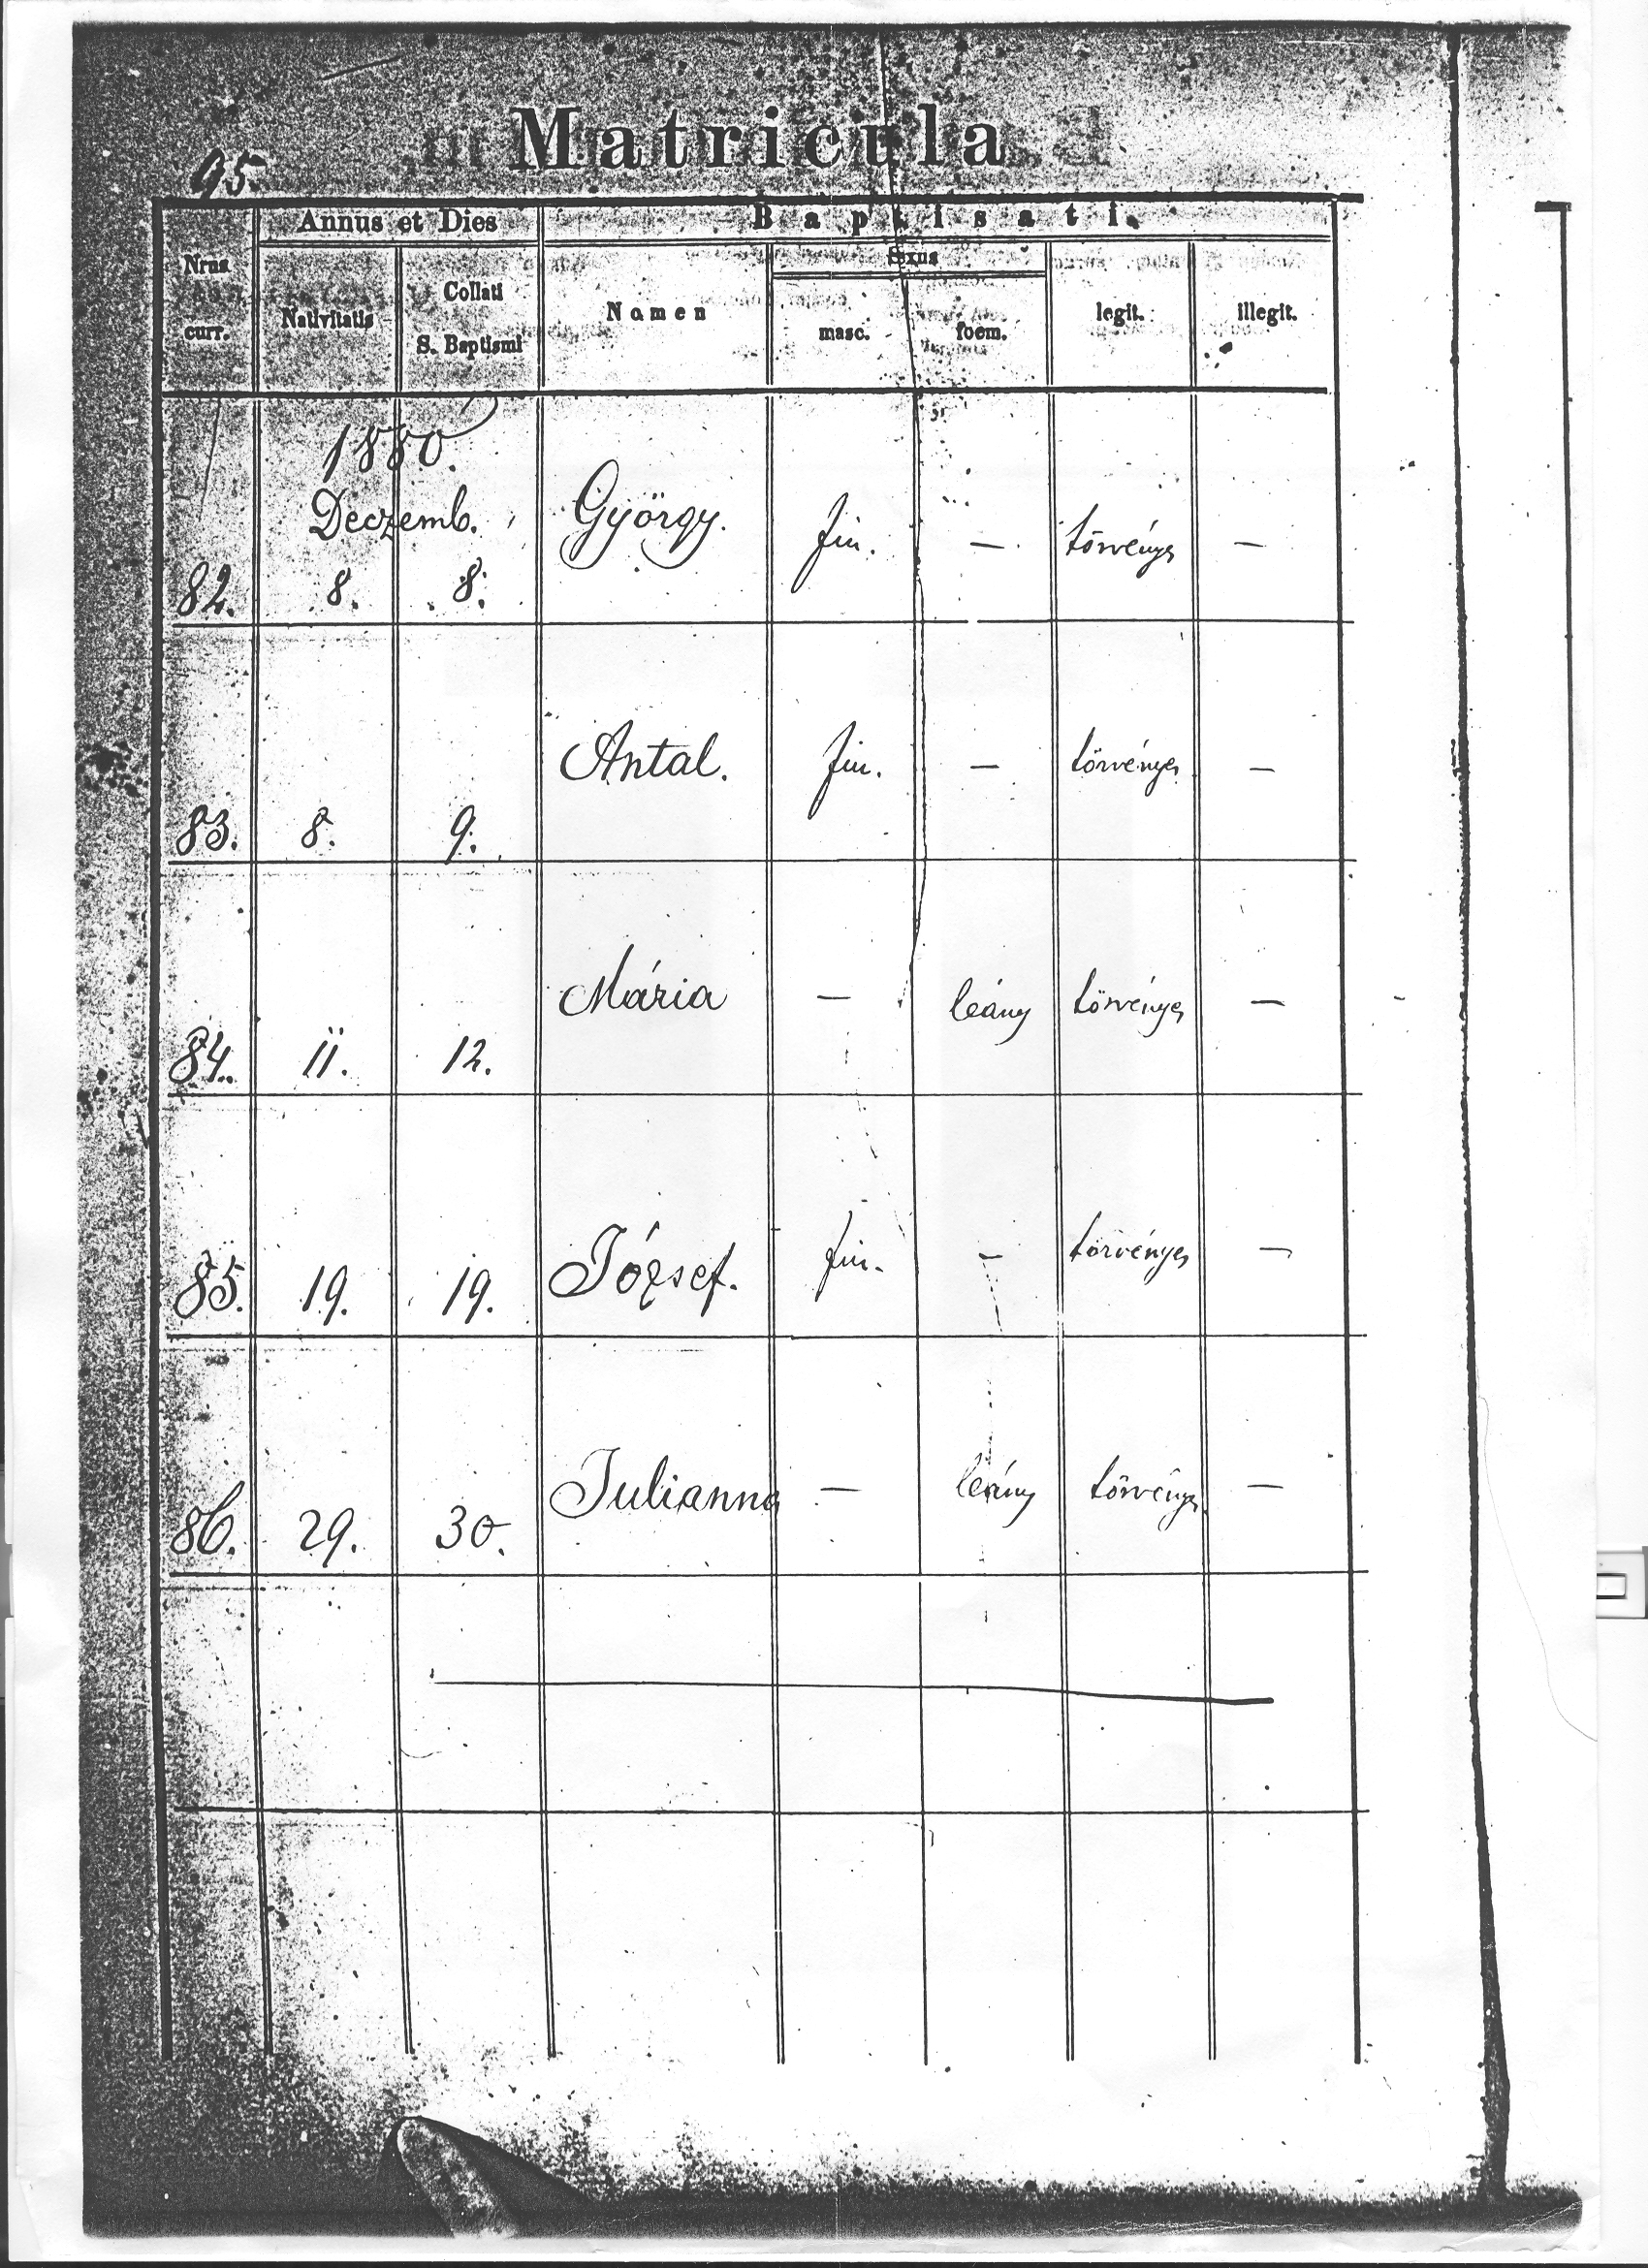 Matricula
95
Annus et Dies Baptisati.
Nrus curr. Nativitatis Collati S. Baptismi Nomen Sexus masc. foem. legit. illegit.
1880.
Deczemb.
82. 8. 8. György. fiu. — törvényes —
83. 8. 9. Antal. fiu. — törvényes —
84. 11. 12. Mária — leány törvényes —
85. 19. 19. József. fiu. — törvényes —
86. 29. 30. Julianna — leány törvényes —